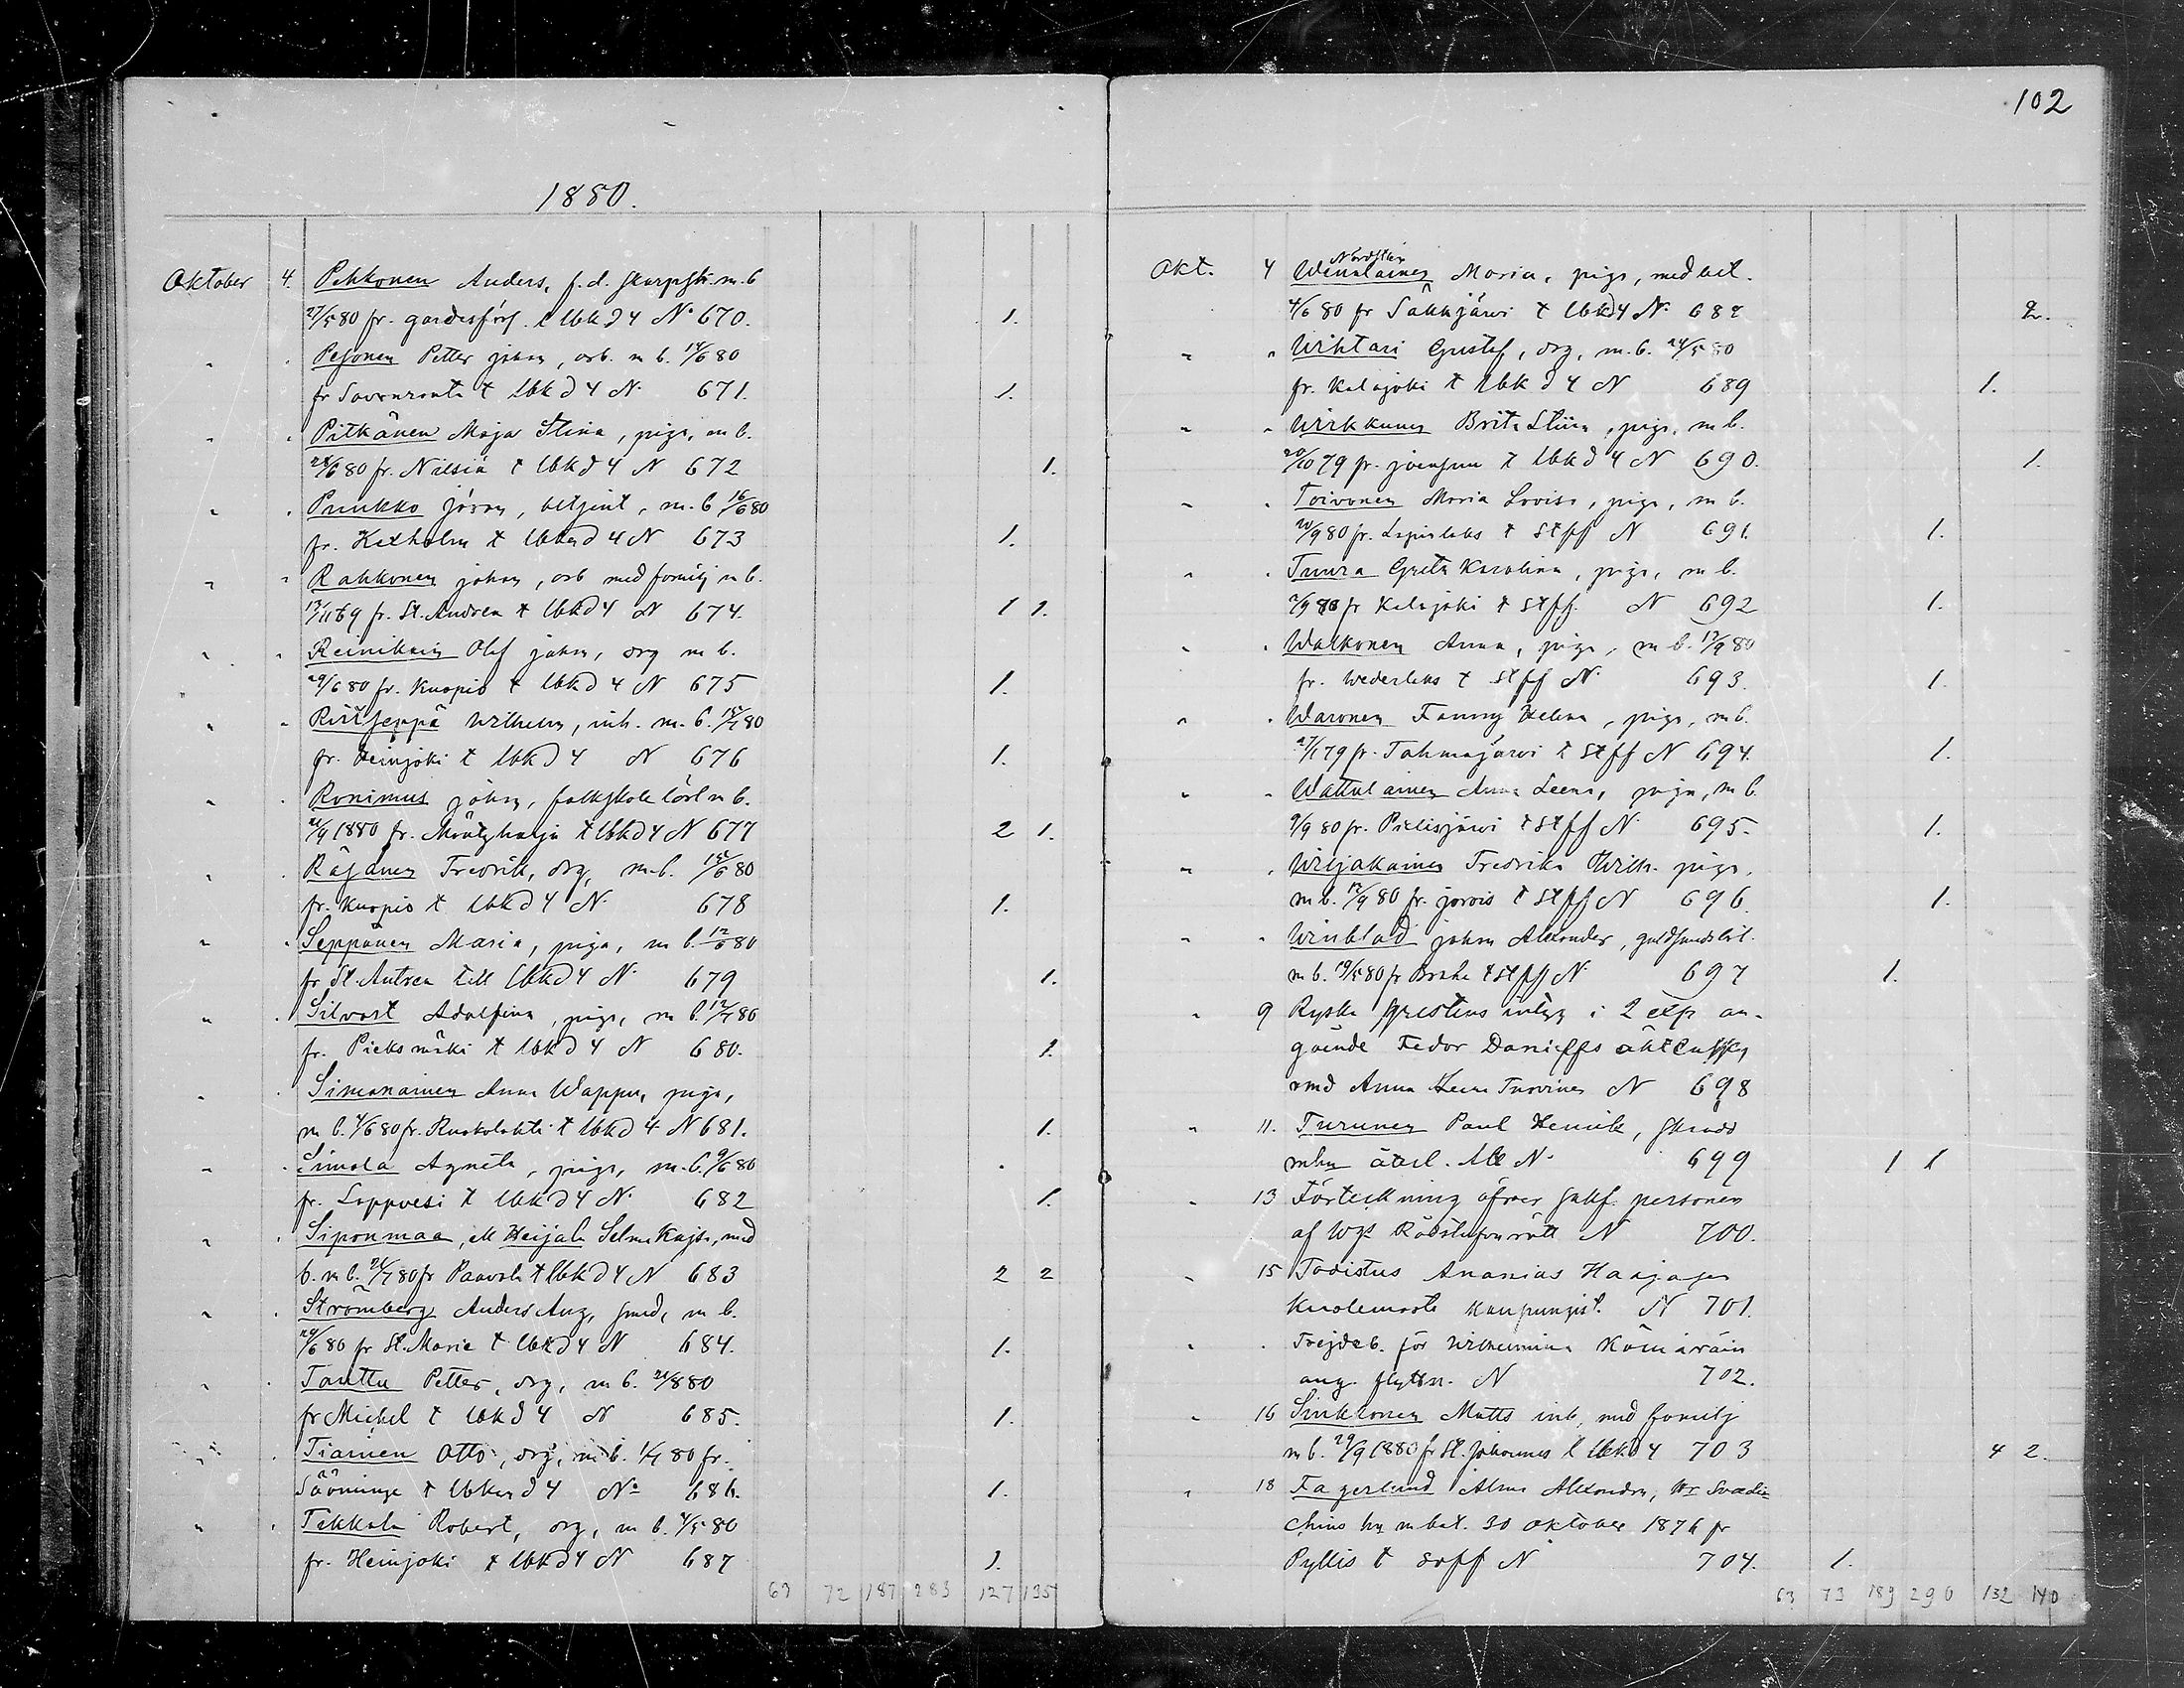 102
1880.
Oktober 4. Pekkonen Anders, f.d. skarpsk. m.b
27/5 80 fr. gardesförs. t lbkd 4 No 670. 1.
" " Pesonen Petter johan, arb. m b. 14/6 80
fr Savonranta t lbkd 4 N. 671. 1.
" " Pitkänen Maja Stina, piga, m b.
28/6 80 fr. Nilsiä t lbkd 4 N 672 1.
" " Puukko jöran, betjent, m. b 16/6 80
fr. Kexholm t lbkd 4 N 673 1.
" " Rahkonen johan, arb med familj m b.
13/11 69 fr. St. Andrea t lbkd 4 N 674. 1 1.
" " Reinikain Olof johan, drg m b.
29/6 80 fr. Kuopio t lbkd 4 N 675 1.
" " Riitseppä Wilhelm, inh. m. b. 15/7 80
fr. Heinjoki t lbkd 4 N 676 1.
" " Ronimus johan, folkskolelärl m b.
21/9 1880 fr. Mäntyharju t lbkd 4 N 677 2 1.
" " Räsänen Fredrik, drg, m. b. 18/6 80
fr. Kuopio t lbkd 4 N. 678 1.
" " Seppänen Maria, piga, m b. 12/6 80
fr St. Antrea till lbkd 4 N. 679 1.
" " Silvast Adolfina, piga, m b. 12/7 80
fr. Pieksmäki t lbkd 4 N 680. 1.
" " Simonainen Anna Wappu, piga,
m b. 4/6 80 fr. Ruokolahti t lbkd 4 N 681. 1.
" " Simola Agneta, piga, m. b. 9/6 80
fr. Loppvesi t lbkd 4 N. 682 1.
" " Siponmaa, ell Heijala Selma Kajsa, med
b. m b. 26/7 80 fr Paavola t lbkd 4 N 683 2 2
" " Strömberg Anders Aug, smed, m b.
29/6 80 fr St. Marie t lbkd 4 N 684. 1.
" " Tanttu Petter, drg, m b. 21/8 80
fr Michel t lbkd 4 N 685. 1.
" " Tiainen Otto, drg, m b. 1/7 80 fr.
Sääminge t lbkd 4 No 686. 1.
" " Tekkala Robert, drg, m b. 4/5 80
fr. Heinjoki t lbkd 4 N 687 1.
62 72 187 283 127 135
Nordsten
Okt. 4 Wennlainen Maria, piga, med bet.
4/6 80 fr Säkkjärvi t lbkd 4 N. 688 2.
" " Wihtari Gustaf, drg, m. b. 24/5 80
fr. Kalajoki t lbkd 4 N 689 1.
" " Wirkkunen Brita Stiina, piga, m b.
20/10 79 fr. joensuu t lbkd 4 N 690. 1.
" " Toivonen Maria Lovisa, piga, m b.
20/9 80 fr. Lapinlaks t stff N 691. 1.
" " Tuura Greta Karolina, piga, m b.
2/9 80 fr Kalajoki t stff. N 692 1.
" " Walkonen Anna, piga, m b. 13/9 80
fr. Wederlaks t stff N. 693. 1.
" " Waronen Fanny Helena, piga, m b.
27/1 79 fr. Tohmajärvi t stff N 694. 1.
" " Wattulainen Anna Leena, piga, m b.
9/9 80 fr. Pielisjärvi t stff N. 695. 1.
" " Wiljakainen Fredrika Wilh. piga.
m b. 12/9 80 fr. jorois t stff N 696. 1.
" " Winblad johan Alexander, guldsmedslärl.
m b. 19/5 80 fr Brahe t stff N. 697 1.
" 9 Ryska prestens intyg i 2 exp an-
gående Fedor Danieffs äktenskap
med Anna Leena Turvinen N 698
" 11. Turunen Paul Henrik, skradd
mhu återl. till N. 699 1 1
" 13 Förteckning öfver saköf. personer
af Wgs Rådstufvurätt N 700.
" 15 Todistus Ananias Haajasen
kuolemasta kaupungist. N 701.
" " Frejdeb. för Wilhelmina Kämäräin
ang. flyttn. N 702.
" 16 Sinkkonen Matts inh, med familj
m b. 29/9 1880 fr St. Johannes t lbkd 4 703 4 2.
" 18 Fagerlund Alma Alexandra,
m bet. 30 oktober 1876 fr
Pyttis t N 704. 1.
63 73 189 290 132 140